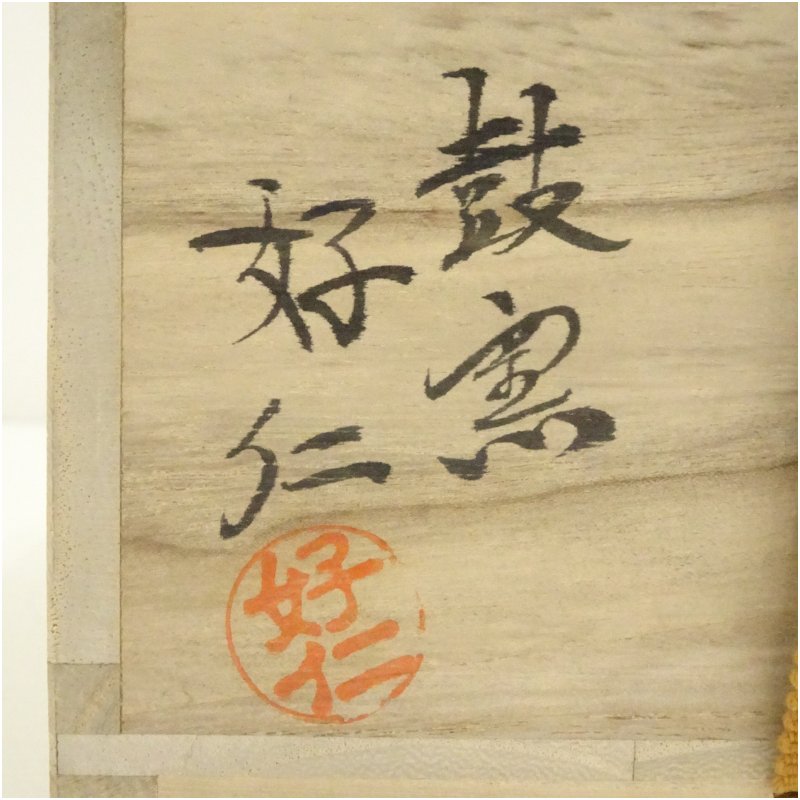 鼓窯
好仁
好仁